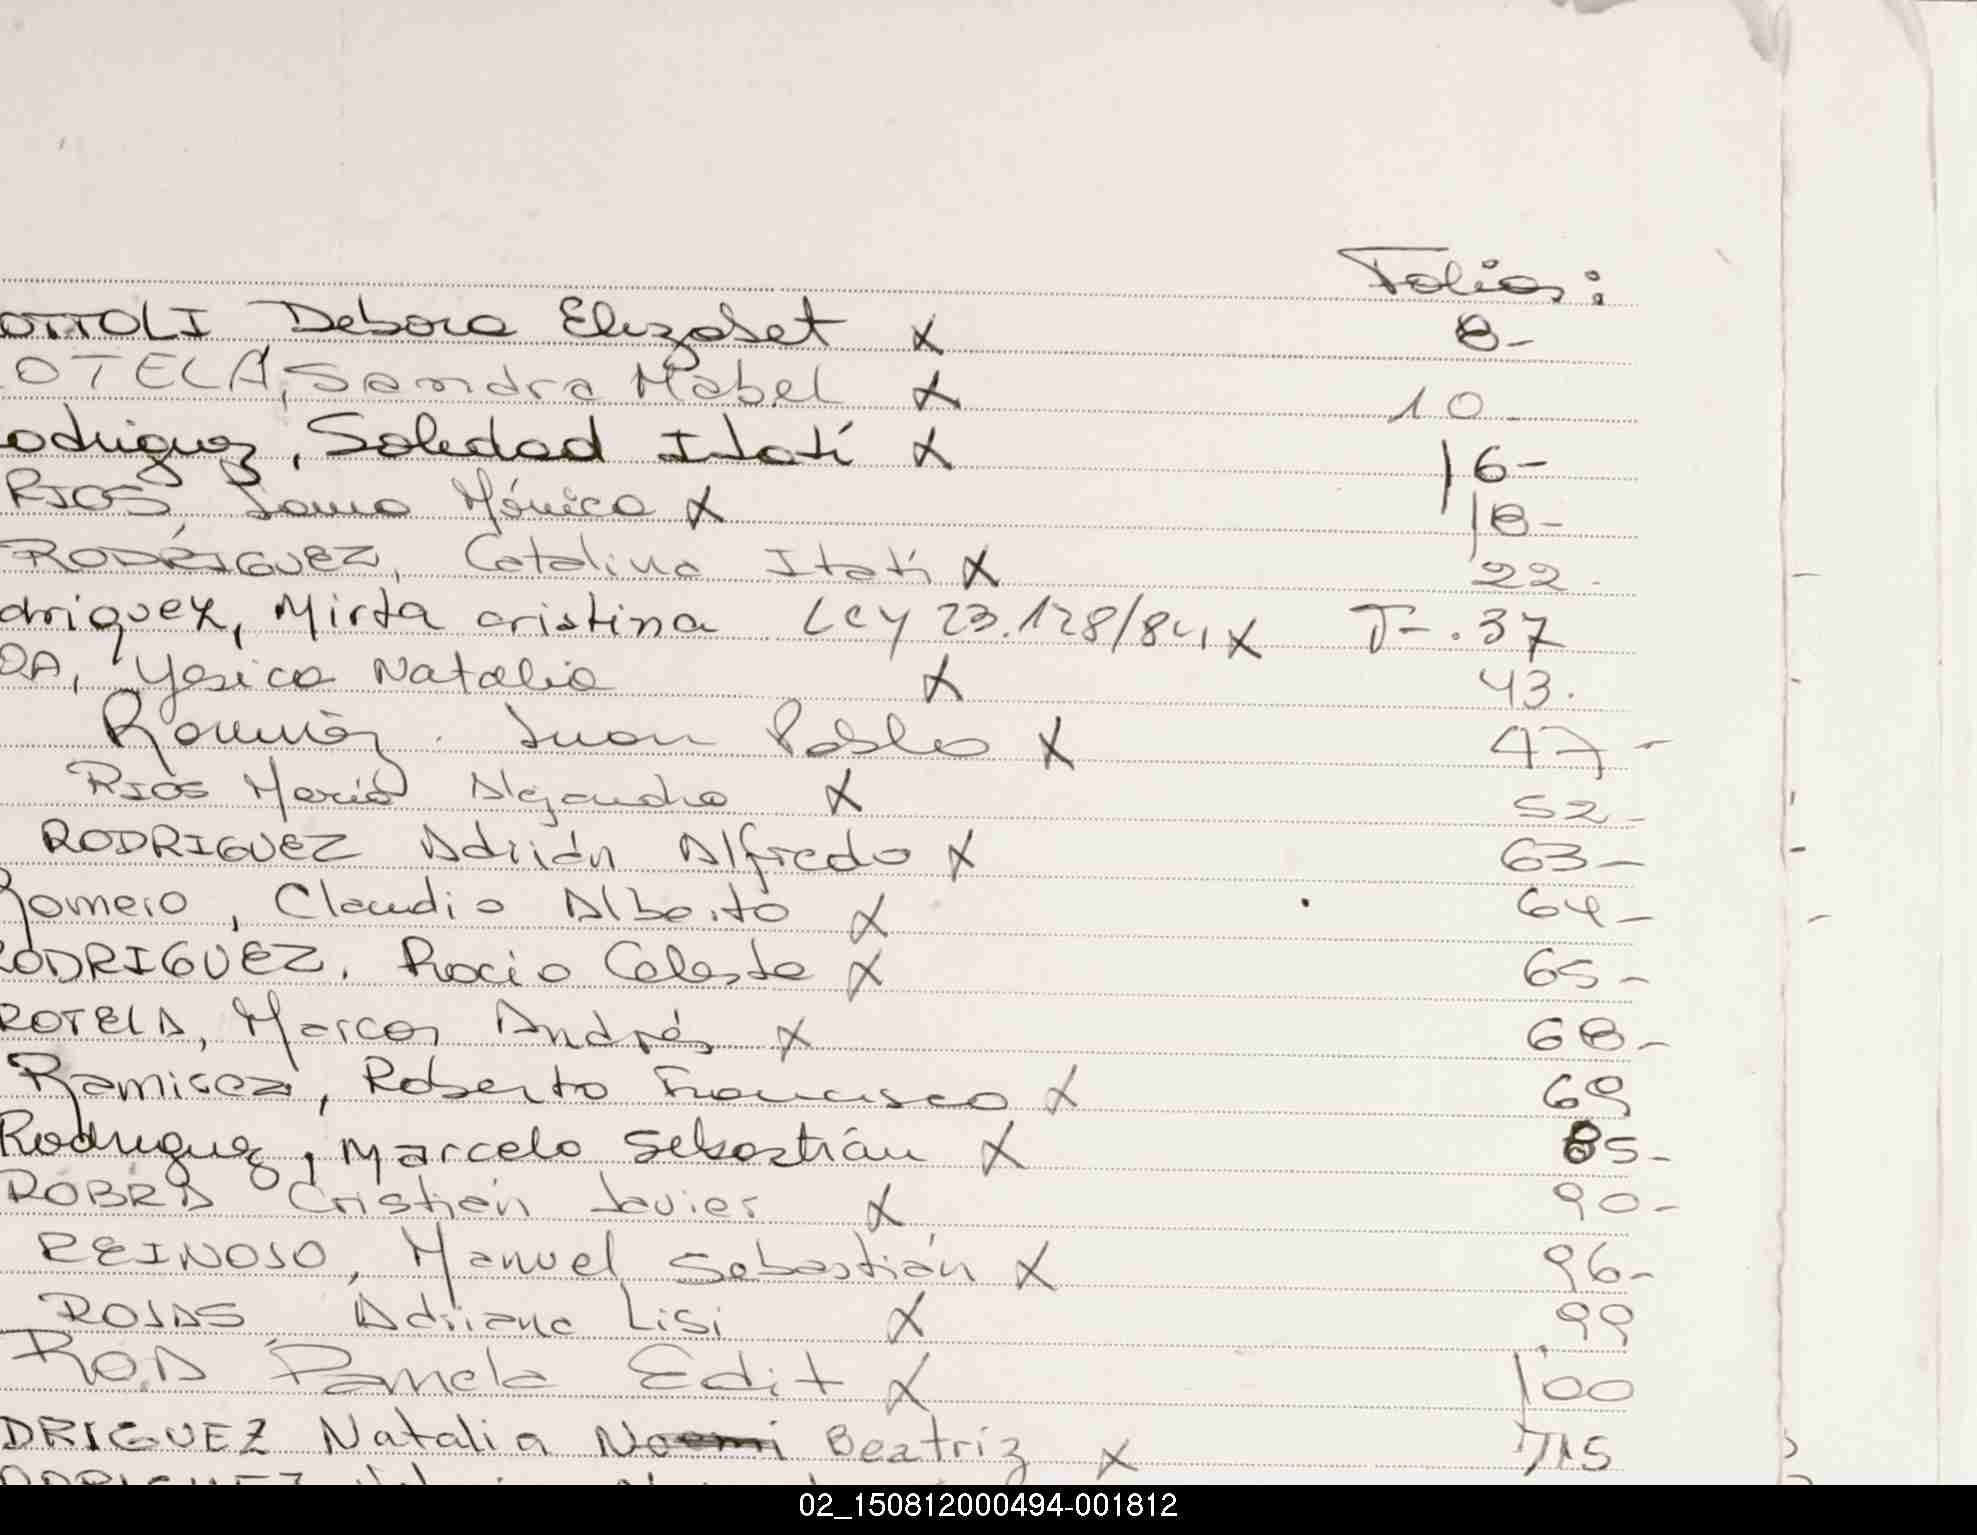 Folios:
OTTOLI Debora Elizabet X 8-
OTELA, Sandra Mabel X 10-
odriguez, Soledad Itatí X 16-
RIOS, Mónica X 18-
RODRÍGUEZ, Catalina Itatí X 22-
driguez, Mirta cristina Ley 23.128/84, X T-.37
OA, Yesica Natalia X 43.
Juan Pablo X 47-
RIOS María Alejandra X 52-
RODRIGUEZ Adrián Alfredo X 63-
Romero, Claudio Alberto X 64-
RODRIGUEZ, Rocio Celeste X 65-
ROTELA, Marcos Andrés X 68-
Ramirez, Roberto Francisco X 69
Rodriguez, Marcelo Sebastián X 85-
ROBRA Cristián Javier X 90-
REINOSO, Manuel Sebastián X 96-
ROJAS Adriana Lisi X 99
ROA Pamela Edit X 100
DRIGUEZ Natalia Noemi Beatriz X
02_150812000494-001812